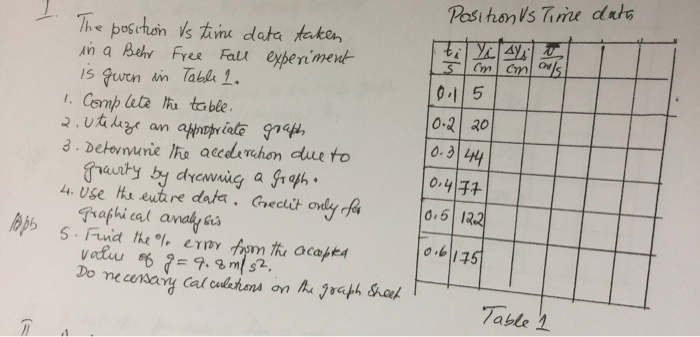 I. The position Vs time data taken
in a Behr Free Fall experiment
is given in Table 1.
1. Complete the table.
2. Utilize an appropriate graph
3. Determine the acceleration due to
gravity by drawing a graph.
4. Use the entire data. Credit only for
graphical analysis
5. Find the % error from the accepted
value of g = 9.8 m/s².
Do necessary calculations on the graph sheet
II
Position Vs Time data
ti/s yi/cm Δyi/cm v̅/cm/s
0.1 5
0.2 20
0.3 44
0.4 77
0.5 122
0.6 175
Table 1